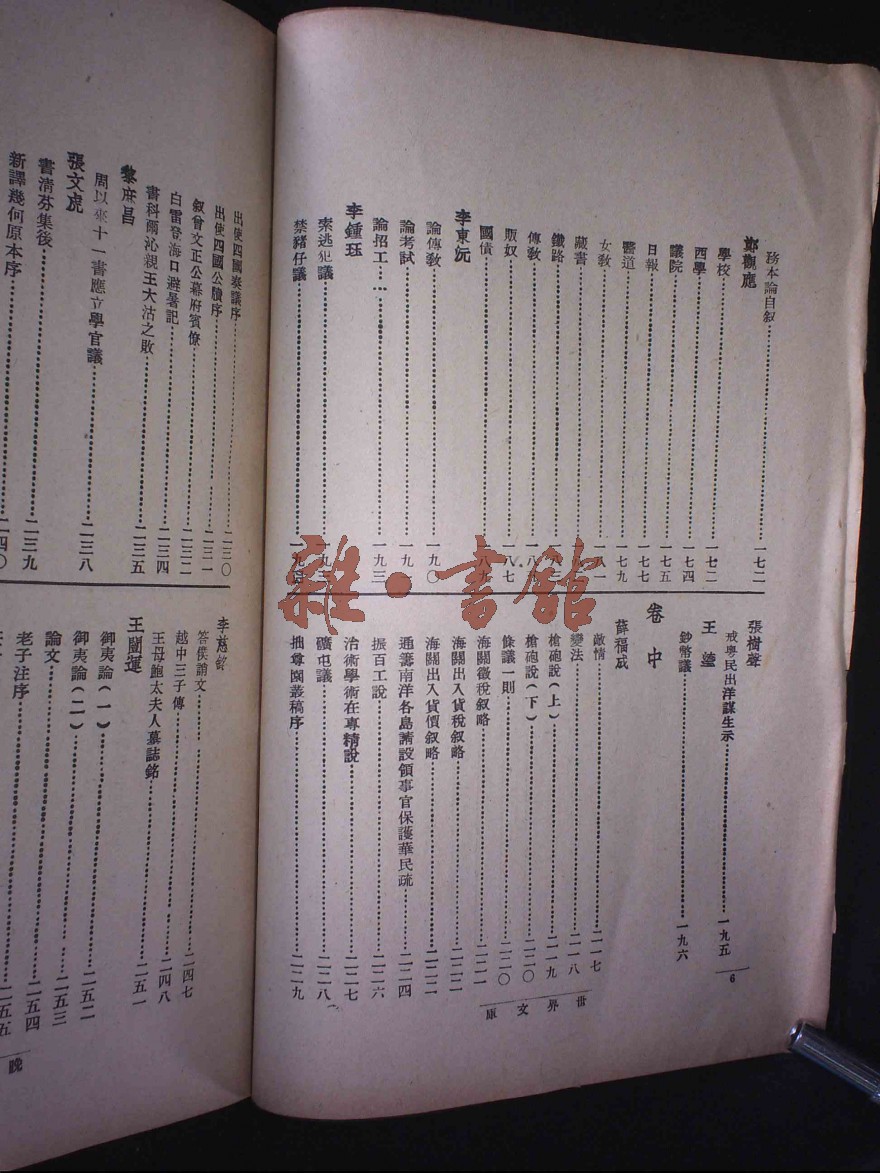 務本論自叙……一七二
鄭觀應
學校……一七二
西學……一七四
議院……一七五
日報……一七七
醫道……一七九
女敎……一八一
藏書
鐵路
傳敎
販奴……一八七
國債……一八九
李東沅
論傳敎……一九〇
論考試
論招工……一九三
李鍾珏
索逃犯議
禁豬仔議
張樹聲
戒粤民出洋謀生示……一九五
王瑬
鈔幣議……一九六
卷中
薛福成
敵情……二一七
變法……二一八
槍砲說(上)……二一九
槍砲說(下)……二二〇
條議一則……二二〇
海關徵稅叙略……二二一
海關出入貨稅叙略……二二二
海關出入貨價叙略……二二二
通籌南洋各島請設領事官保護華民疏……二二四
振百工說……二二六
治術學術在專精說……二二七
礦屯議……二二八
拙尊園叢稿序……二二九
6
世界文庫
出使四國奏議序……二三〇
出使四國公牘序……二三一
叙曾文正公幕府賓僚……二三二
白雷登海口避暑記……二三四
書科爾沁親王大沽之敗……二三五
黎庶昌
周以來十一書應立學官議……二三八
張文虎
書淸芬集後……二三九
新譯幾何原本序……二四〇
李慈銘
答僕誚文……二四七
越中三子傳……二四八
王母鮑太夫人墓誌銘……二五一
王闓運
御夷論(一)……二五二
御夷論(二)……二五三
論文……二五四
老子注序……二五五
晚
雜·書館